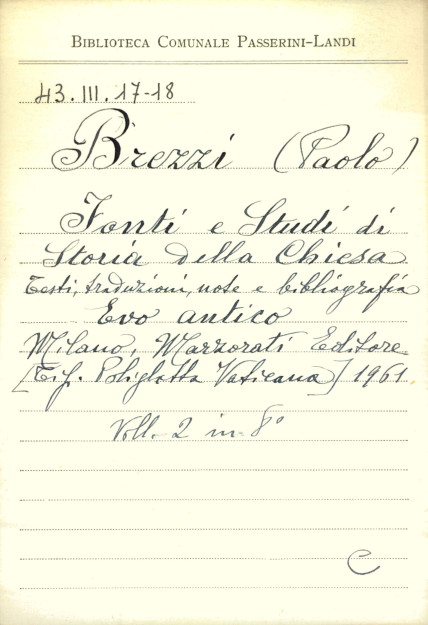 BIBLIOTECA COMUNALE PASSERINI-LANDI
43.III.17-18
Brezzi (Paolo)
Fonti e Studi di
Storia della Chiesa
Testi, traduzioni, note e bibliografia
Evo antico
Milano, Marzorati Editore
[Tip. Poliglotta Vaticana] 1961
Voll. 2 in 8°
C